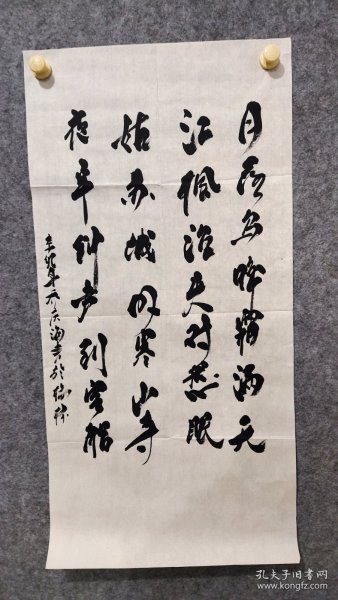 月落乌啼霜满天
江枫渔火对愁眠
姑苏城外寒山寺
夜半钟声到客船
孔夫子旧书网
www.kongfz.com